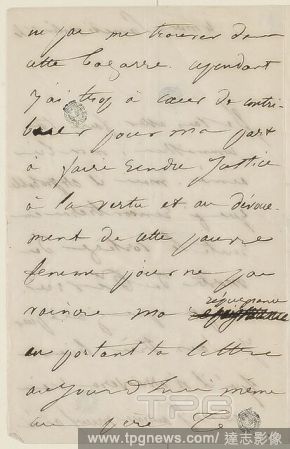 ne pas me trouver dans
cette bagarre. cependant
j'ai trop à cœur de contri-
buer pour ma part
à faire rendre justice
à la vertu et au dévoue-
ment de cette pauvre
femme pour ne pas
vaincre ma répugnance
en portant la lettre
aujourd'hui même
au père
TPG
www.tpgnews.com / 達志影像